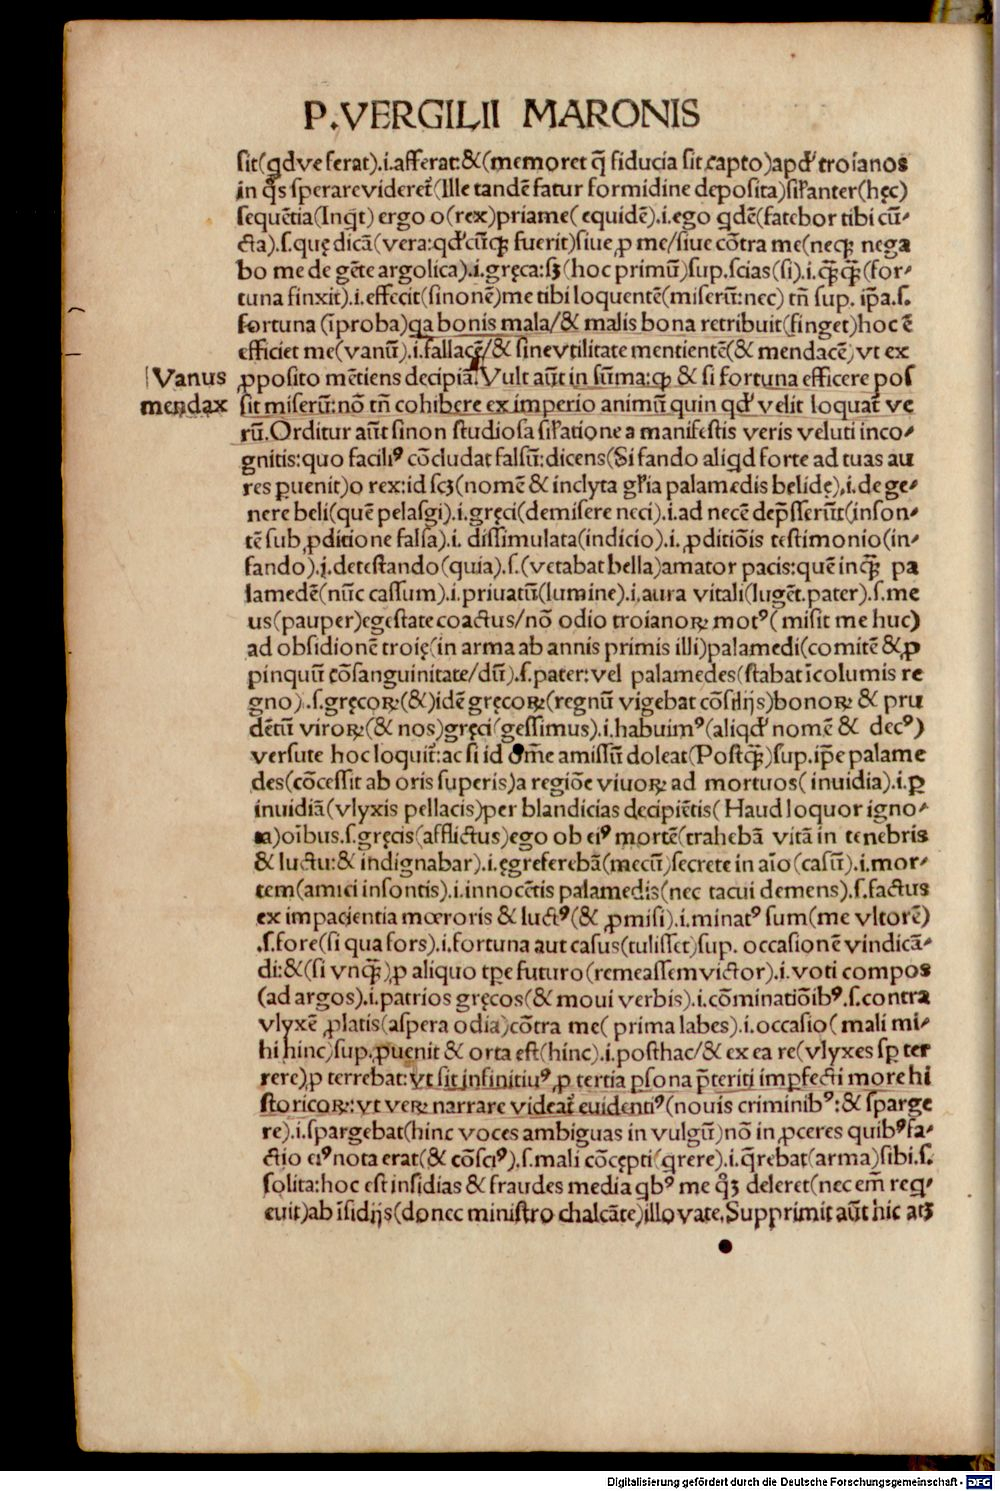 P.VERGILII MARONIS
sit(qdve ferat).i.afferat:&(memoret q̄ fiducia sit capto)apď troianos
in q̄s sperare videret̄(Ille tandē fatur formidine deposita)sił'anter(hęc)
sequētia(Inqt) ergo o(rex)priame(equidē).i.ego qdē(fatebor tibi cū⸗
cta).s.quę dicā(vera:qď cūqꝫ fuerit)siue ꝓ me/siue cōtra me(neqꝫ nega
bo me de gēte argolica).i.gręca:sꝫ(hoc primū)sup.scias(si).i.q̄ꝫq̄ꝫ(for⸗
tuna finxit).i.effecit(sinonē)me tibi loquentē(miserū:nec) tñ sup. ip̄a.s.
fortuna (īproba)qa bonis mala/& malis bona retribuit(finget)hoc ē
efficiet me(vanū).i.fallacē/& sine vtilitate mentientē(& mendacē)vt ex
Vanus ꝓposito mētiens decipiā.Vult aūt in sūma:qꝫ & si fortuna efficere pos
mendax sit miserū:nō tñ cohibere ex imperio animū quin qď velit loquat̄ ve
rū.Orditur aūt sinon studiosa sił'atione a manifestis veris veluti inco⸗
gnitis:quo faciliꝰ cōcludat falsū:dicens(Si fando aliqd forte ad tuas au
res ꝑuenit)o rex:id scꝫ(nomē & inclyta gł'ia palamedis belidę).i.de ge⸗
nere beli(quē pelasgi).i.gręci(demisere neci).i.ad necē dep̄sserūt(inson⸗
tē sub ꝓditione falsa).i. dissimulata(indicio).i. ꝓditiōis testimonio(in⸗
fando).i.detestando(quia).s.(vetabat bella)amator pacis:quē inq̄ꝫ pa
lamedē(nūc cassum).i.priuatū(lumine).i.aura vitali(lugēt.pater).s.me
us(pauper)egestate coactus/nō odio troianoꝝ motꝰ(misit me huc)
ad obsidionē troię(in arma ab annis primis illi)palamedi(comitē &ꝓ
pinquū cōsanguinitate/dū).s.pater:vel palamedes(stabat īcolumis re
gno).s.gręcoꝝ(&)idē gręcoꝝ(regnū vigebat cōsilijs)bonoꝝ & pru
dētū viroꝝ(& nos)gręci(gessimus).i.habuimꝰ(aliqď nomē & decꝰ)
versute hoc loquit̄:ac si id oīme amissū doleat(Postq̄ꝫ)sup.ip̄e palame
des(cōcessit ab oris superis)a regiōe viuoꝝ ad mortuos(inuidia).i.ꝑ
inuidiā(vlyxis pellacis)per blandicias decipiētis(Haud loquor igno⸗
ta)oībus.s.gręcis(afflictus)ego ob eiꝰ mortē(trahebā vitā in tenebris
& luctu:& indignabar).i.ęgreferebā(mecū)secrete in aīo(casū).i.mor⸗
tem(amici insontis).i.innocētis palamedis(nec tacui demens).s.factus
ex impacientia mœroris & luctꝰ(& ꝓmisi).i.minatꝰ sum(me vltorē)
.s.fore(si qua fors).i.fortuna aut casus(tulisset)sup. occasionē vindicā⸗
di:&(si vnq̄ꝫ)ꝓ aliquo tp̄e futuro(remeassem victor).i.voti compos
(ad argos).i.patrios gręcos(& moui verbis).i.cōminatiōibꝰ.s.contra
vlyxē ꝓlatis(aspera odia)cōtra me(prima labes).i.occasio(mali mi⸗
hi hinc)sup.ꝓuenit & orta est(hinc).i.posthac/& ex ea re(vlyxes sꝑ ter
rere)ꝓ terrebat:vt sit infinitiuꝰ ꝓ tertia ꝑsona p̄teriti imꝑfecti more hi
storicoꝝ:vt veꝝ narrare videat̄ euidentiꝰ(nouis criminibꝰ:& sparge
re).i.spargebat(hinc voces ambiguas in vulgū)nō in ꝓceres quibꝰfa⸗
ctio eiꝰ nota erat(& cōsciꝰ).s.mali cōcępti(qrere).i.q̄rebat(arma)sibi.s.
solita:hoc est insidias & fraudes media qbꝰ me qꝫ deleret(nec em̄ req⸗
euit)ab īsidijs(donec ministro chalcāte)illo vate.Supprimit aūt hic atꝫ
Digitalisierung gefördert durch die Deutsche Forschungsgemeinschaft - DFG